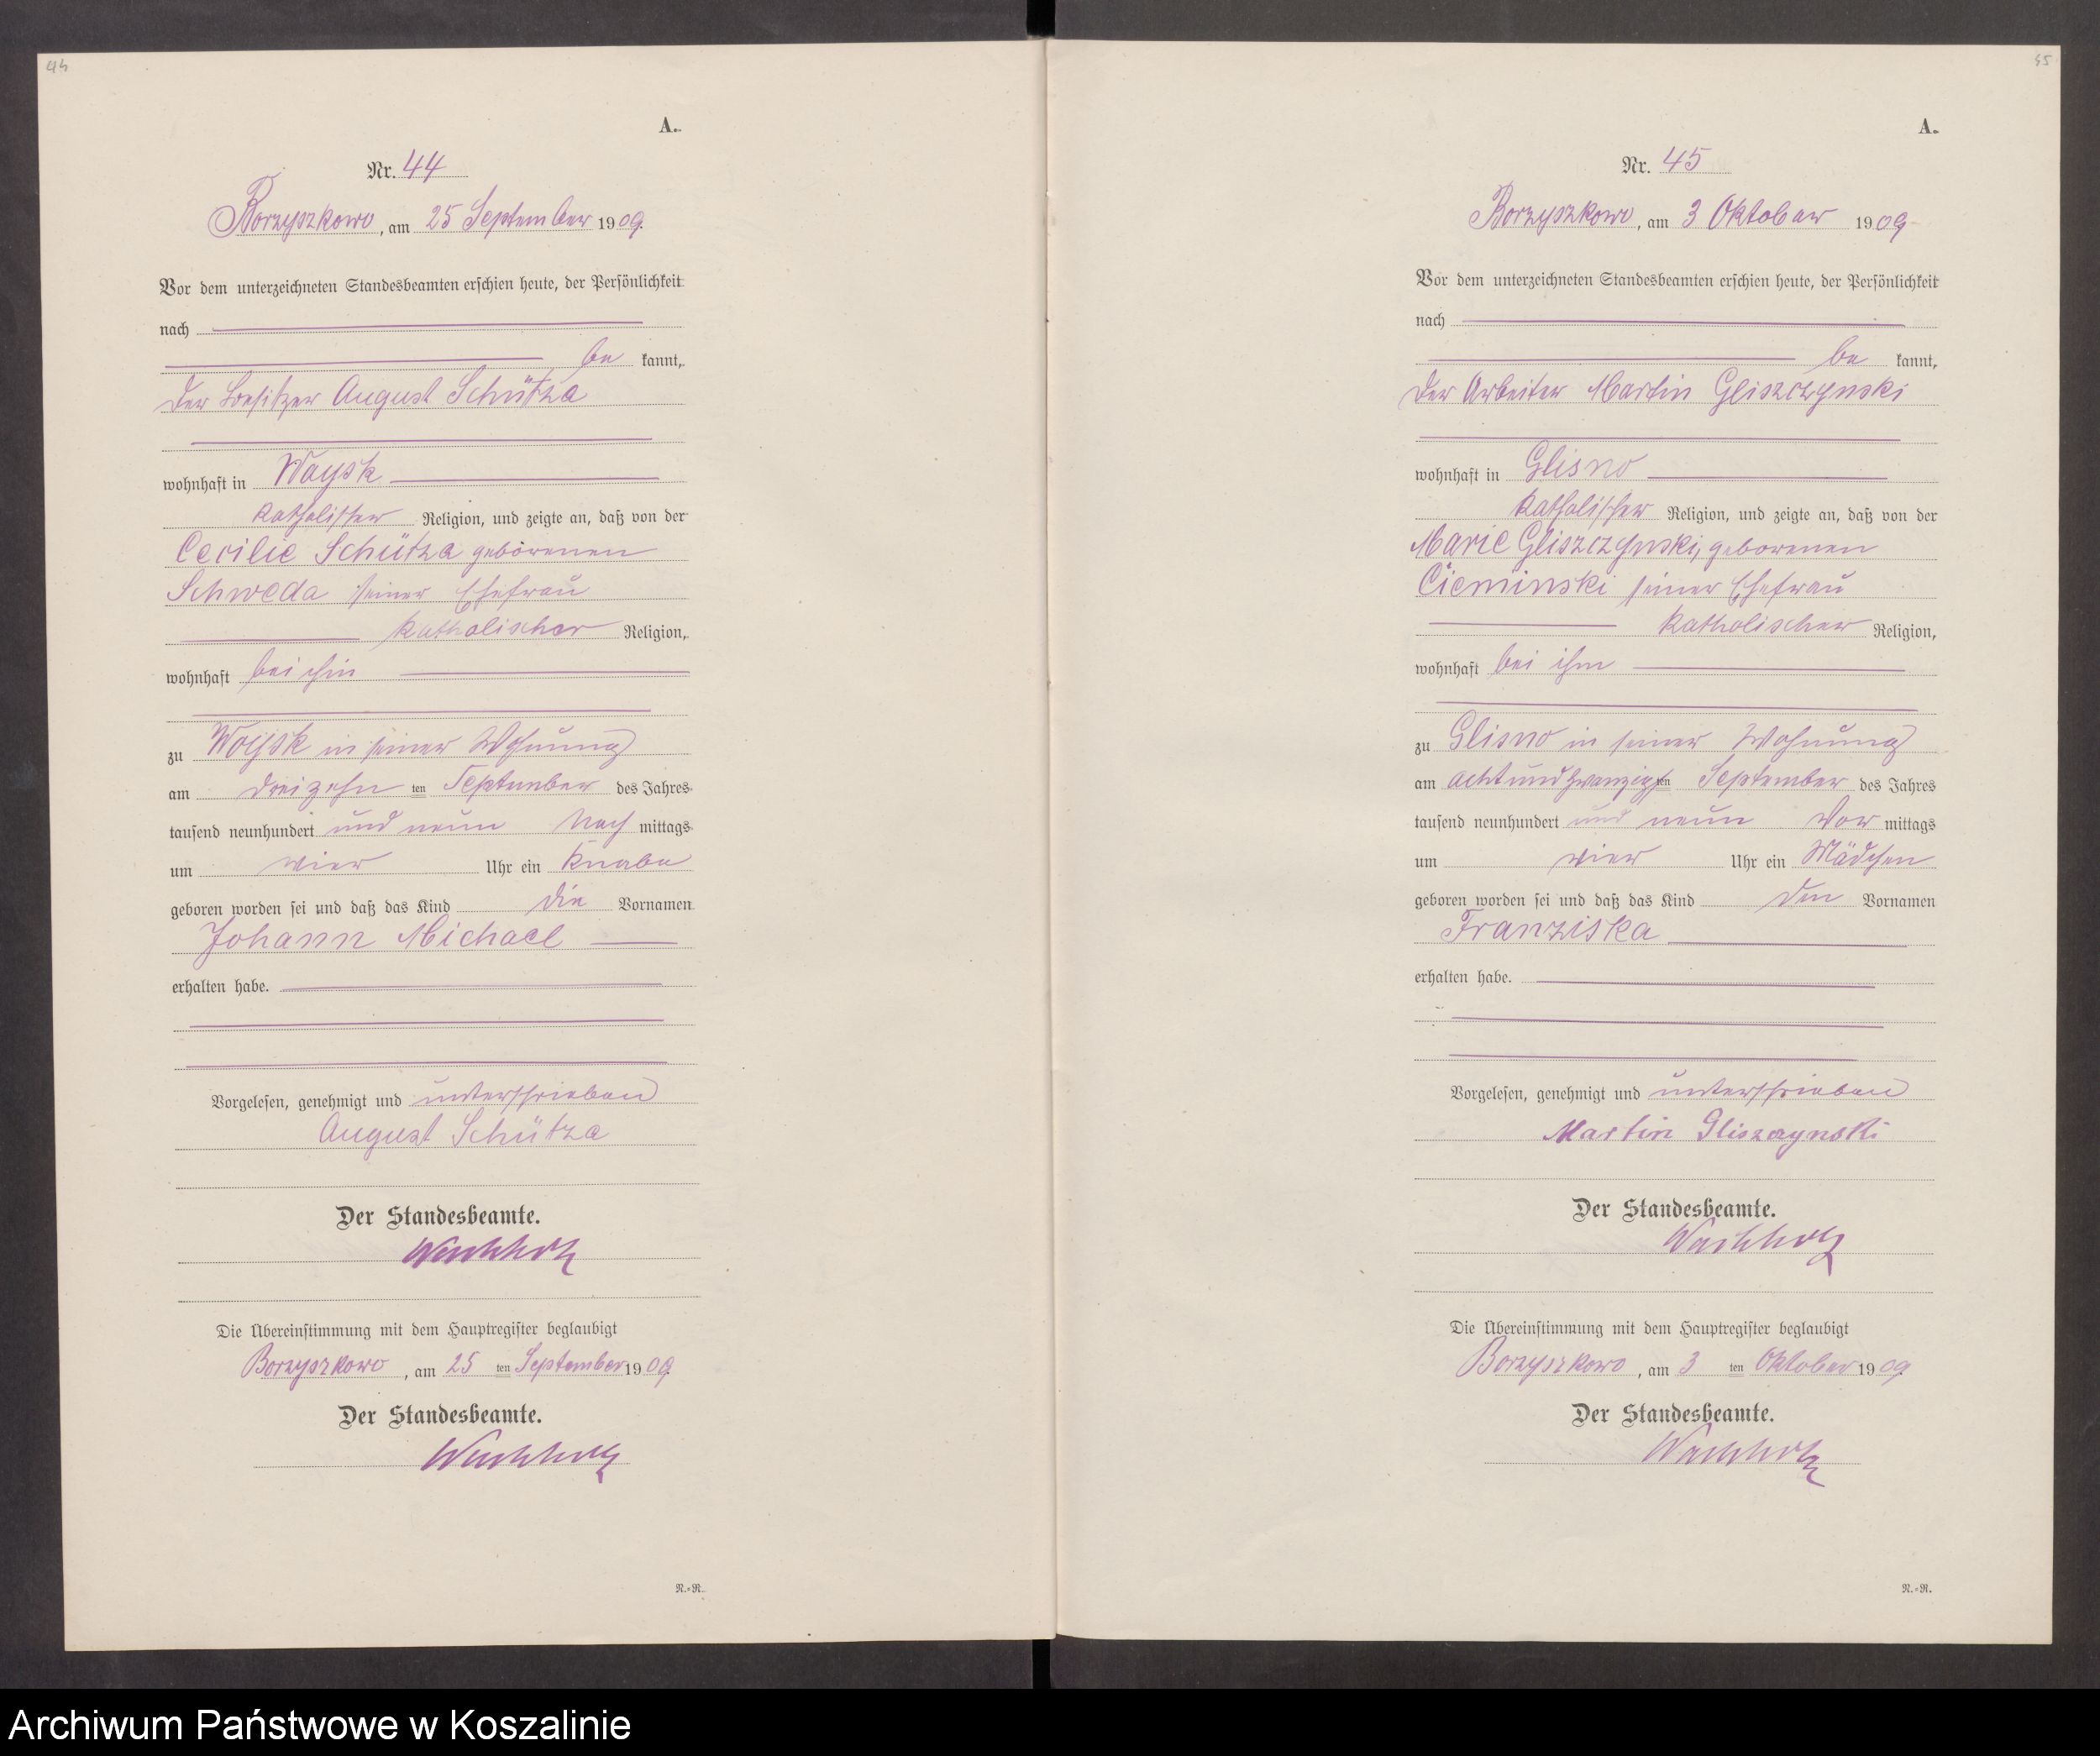 44
A.
Nr. 44
Borzyszkowo, am 25 September 1909.
Vor dem unterzeichneten Standesbeamten erschien heute, der Persönlichkeit
nach
be kannt,
der Besitzer August Schütza
wohnhaft in Woysk
katholischer Religion, und zeigte an, daß von der
Cecilie Schütza geborenen
Schweda seiner Ehefrau
katholischer Religion,
wohnhaft bei ihm
zu Woysk in seiner Wohnung
am dreizehn ten September des Jahres
tausend neunhundert und neun Nach mittags
um vier Uhr ein Knabe
geboren worden sei und daß das Kind die Vornamen
Johann Michael
erhalten habe.
Vorgelesen, genehmigt und unterschrieben
August Schütza
Der Standesbeamte.
Wachholz
Die Übereinstimmung mit dem Hauptregister beglaubigt
Borzyszkowo, am 25 ten September 1909.
Der Standesbeamte.
Wachholz
N.=N.
45
A.
Nr. 45
Borzyszkowo, am 3 Oktober 1909
Vor dem unterzeichneten Standesbeamten erschien heute, der Persönlichkeit
nach
be kannt,
der Arbeiter Martin Gliszczynski
wohnhaft in Glisno
katholischer Religion, und zeigte an, daß von der
Marie Gliszczynski, geborenen
Cieminski seiner Ehefrau
katholischer Religion,
wohnhaft bei ihm
zu Glisno in seiner Wohnung
am achtundzwanzigsten September des Jahres
tausend neunhundert und neun Vor mittags
um vier Uhr ein Mädchen
geboren worden sei und daß das Kind den Vornamen
Franziska
erhalten habe.
Vorgelesen, genehmigt und unterschrieben
Martin Gliszczynski
Der Standesbeamte.
Wachholz
Die Übereinstimmung mit dem Hauptregister beglaubigt
Borzyszkowo, am 3 ten Oktober 1909
Der Standesbeamte.
Wachholz
N.=N.
Archiwum Państwowe w Koszalinie